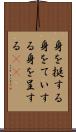 身を挺する
身をていす
る身を呈す
る